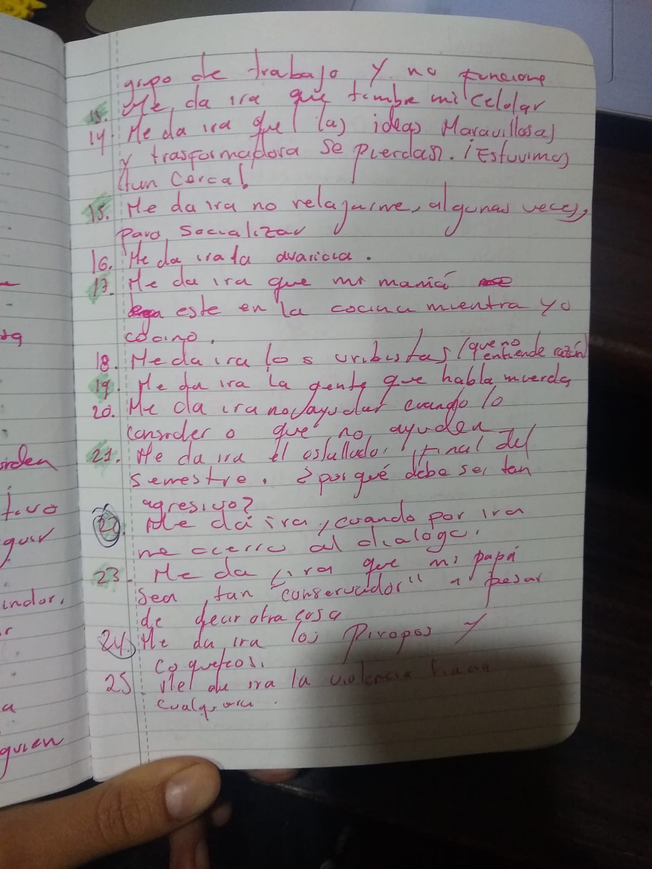 grupo de trabajo y no funcione
13. Me da ira que timbre mi celular
14. Me da ira que las ideas Maravillosas
y trasformadora se pierdas. ¡Estuvimos
tan cerca!
15. Me da ira no relajarme, algunas veces,
para socializar
16. Me da ira la avaricia.
17. Me da ira que mi mamá
este en la cocina mientra yo
cocino.
18. Me da ira los uribistas (que no
entiende razón)
19. Me da ira la gente que habla mierda
20. Me da ira no ayudar cuando lo
considero o que no ayuden
21. Me da ira el estallado final del
semestre. ¿por qué debe ser tan
agresivo?
22. Me da ira, cuando por ira
me cierro al dialogo.
23. Me da ira que mi papá
sea tan "conservador" a pesar
de decir otra cosa
24. Me da ira los Piropos y
coqueteos.
25. Me da ira la violencia
cualquiera.
orden
tivo
guir
indor,
a
guien